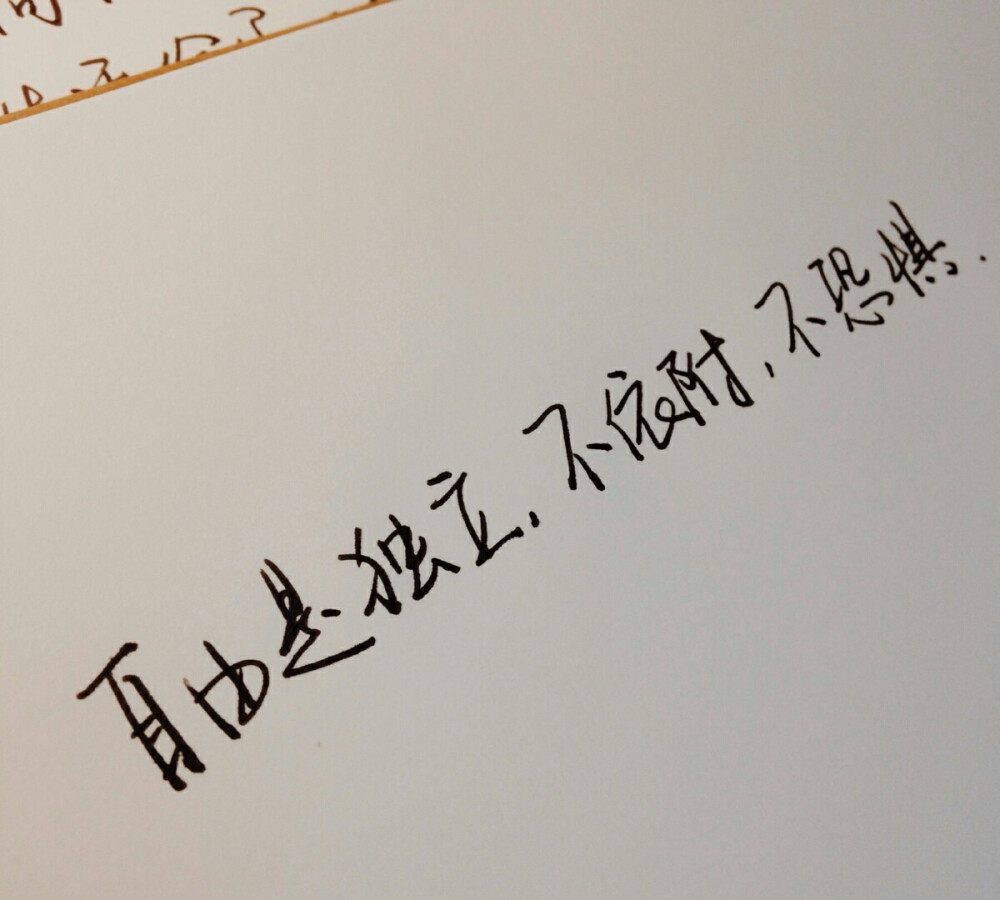 自由是独立，不依附，不恐惧．